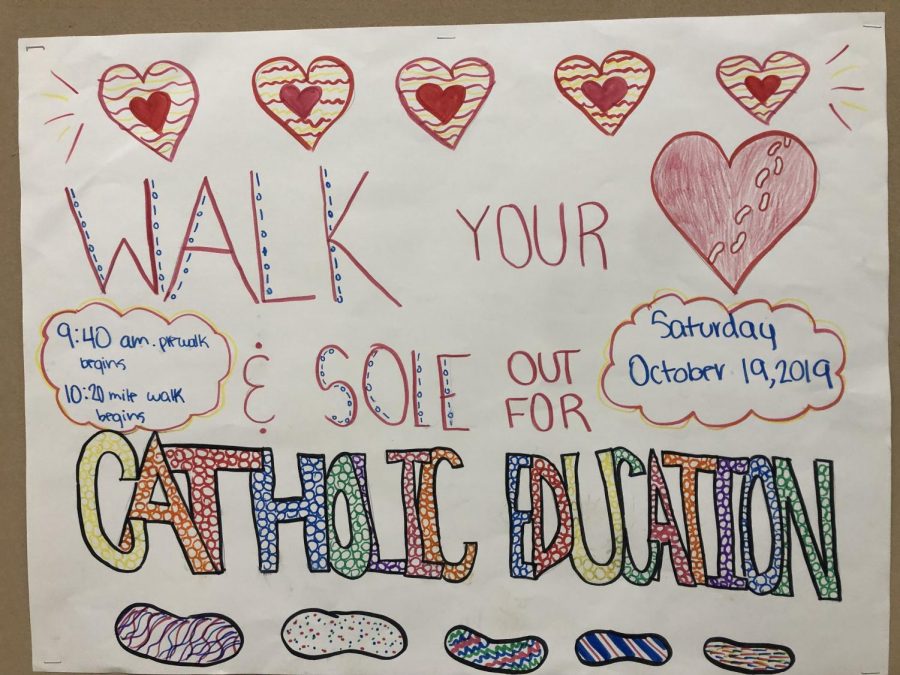 WALK YOUR
9:40 am. prewalk
begins
10:20 mile walk
begins
& SOLE OUT
FOR
Saturday
October 19, 2019
CATHOLIC EDUCATION